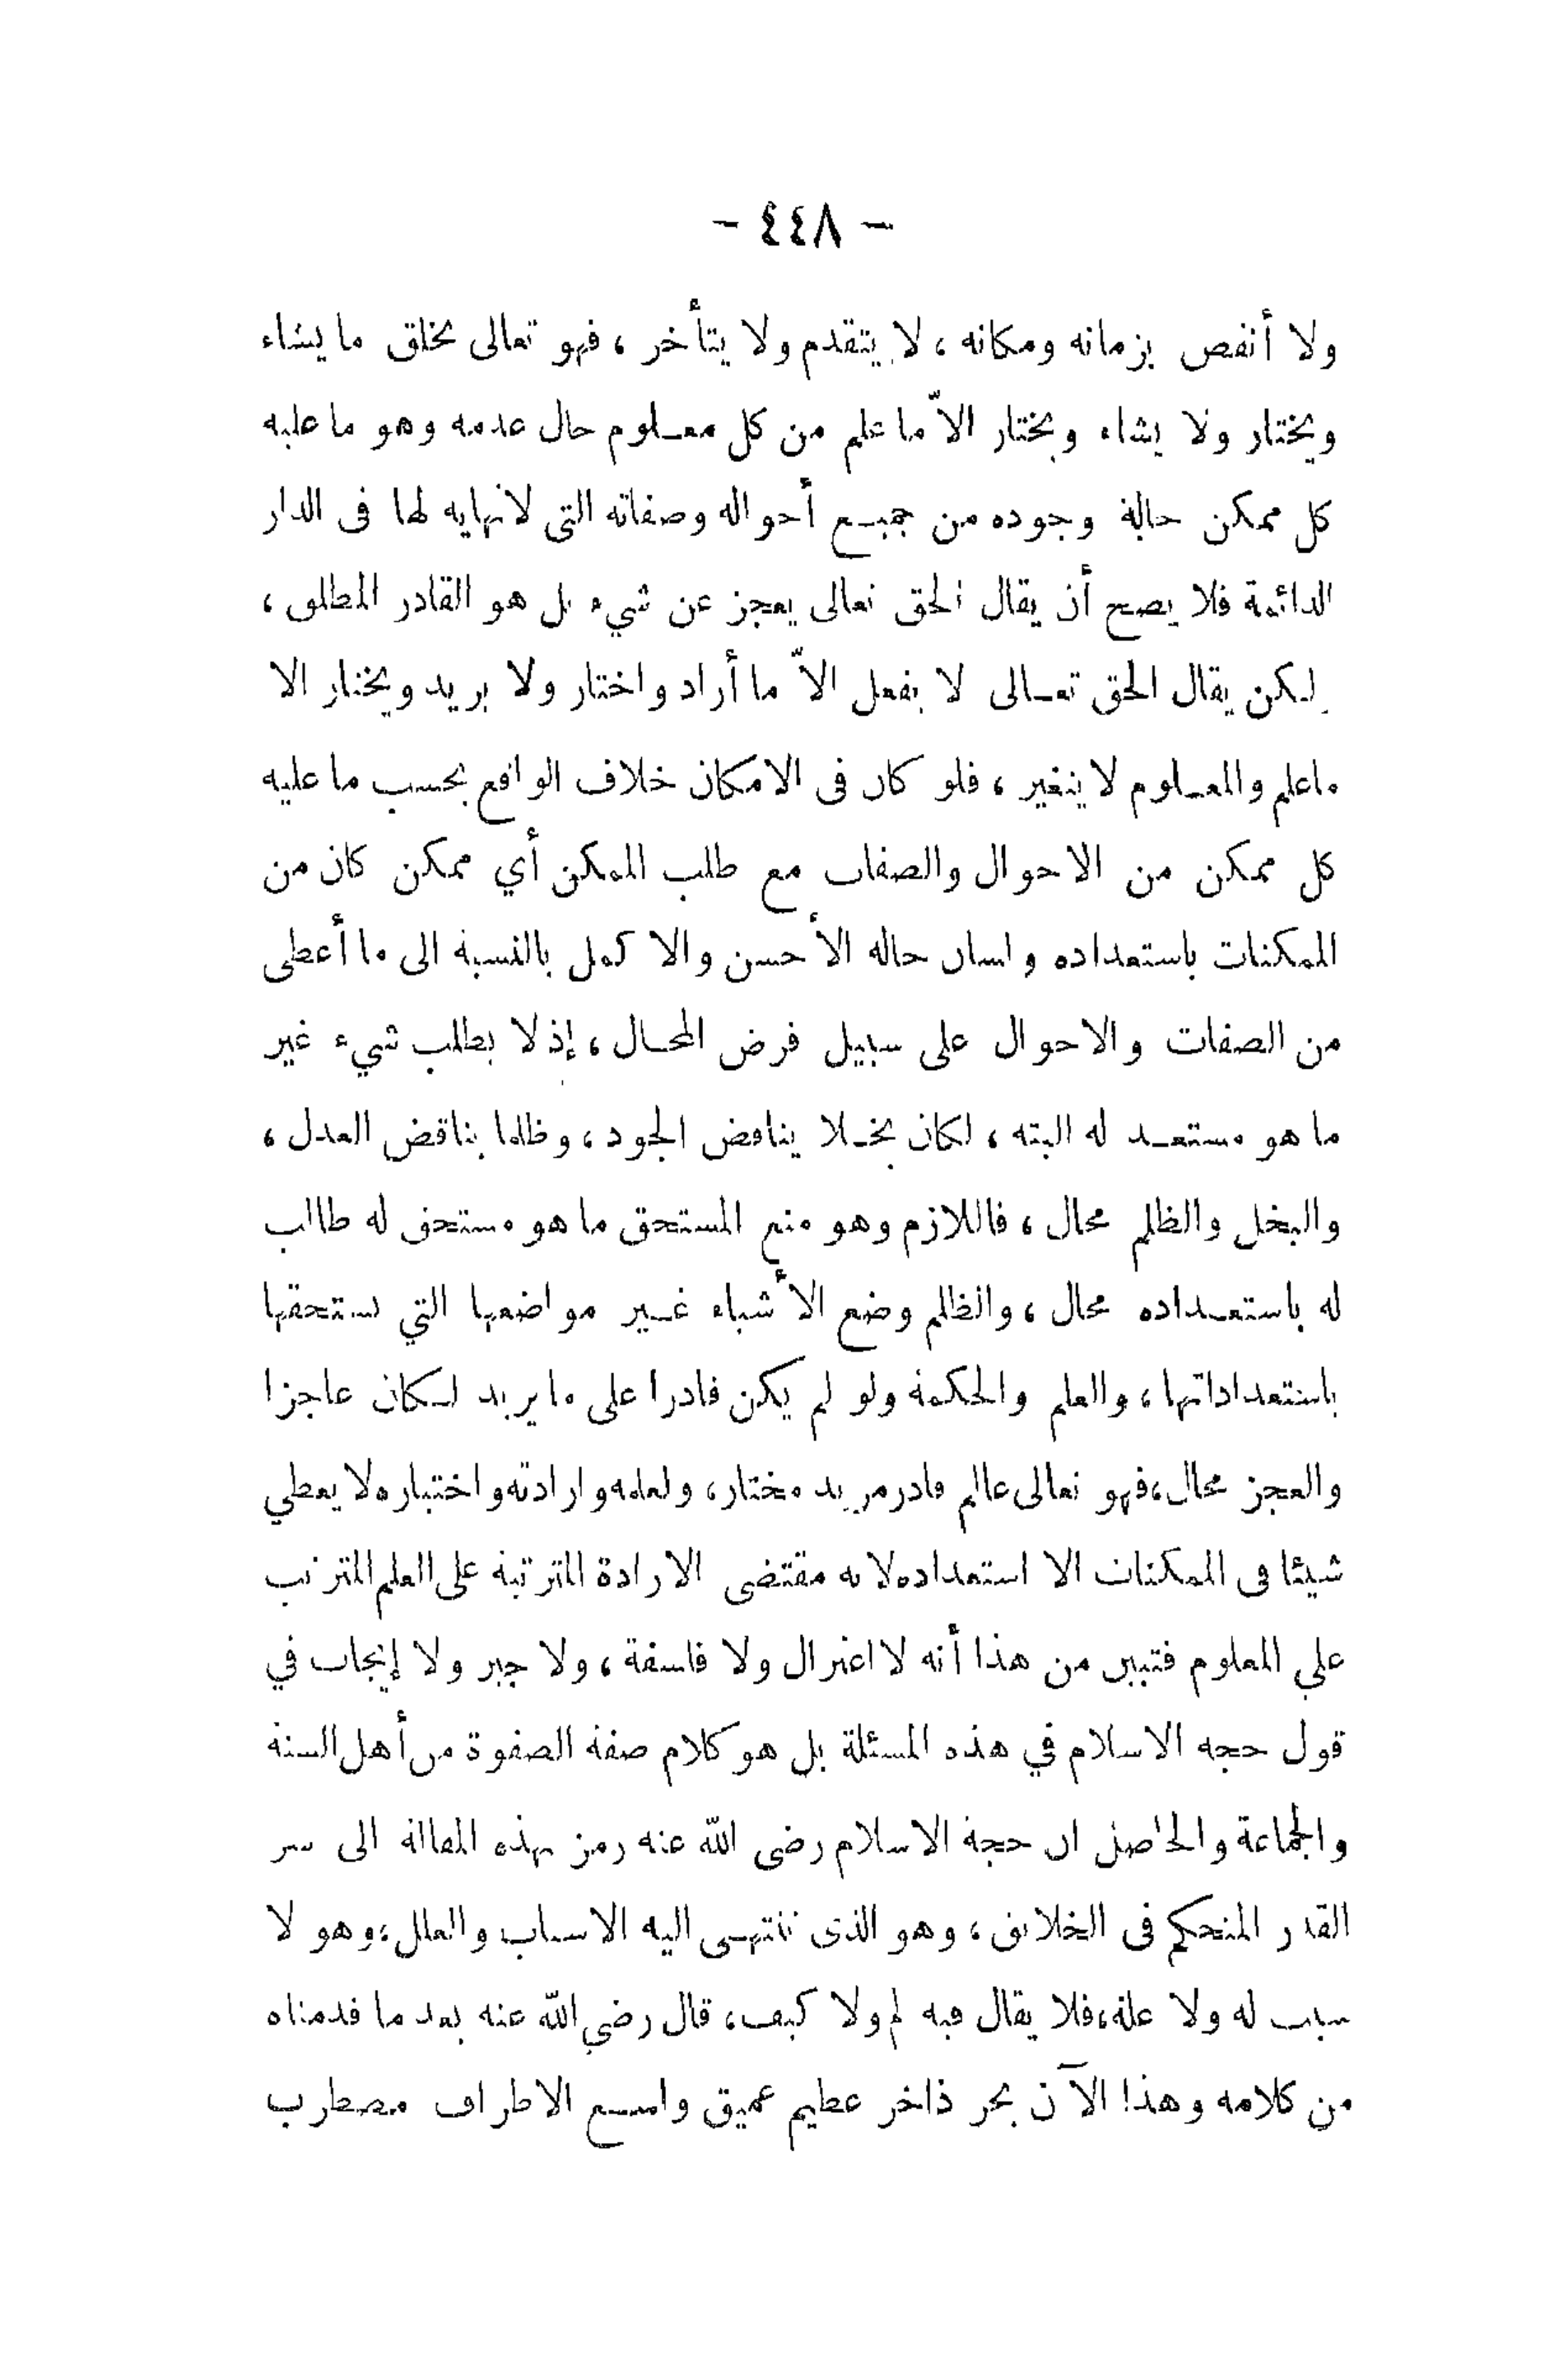 - ٤٤٨ -
ولا أنقص بزمانه ومكانه ، لا يتقدم ولا يتأخر ، فهو تعالى يخلق ما يشاء
ويختار ولا يشاء ويختار الاّ ما علم من كل معلوم حال عدمه وهو ما عليه
كل ممكن حالة وجوده من جميع أحواله وصفاته التى لانهايه لها فى الدار
الدائمة فلا يصح أن يقال الحق تعالى يعجز عن شيء بل هو القادر المطلق ،
لكن يقال الحق تعالى لا يفعل الاّ ما أراد واختار ولا يريد ويختار الا
ماعلم والمعلوم لايتغير ، فلو كان فى الامكان خلاف الواقع بحسب ما عليه
كل ممكن من الاحوال والصفات مع طلب الممكن أي ممكن كان من
الممكنات باستعداده ولسان حاله الأحسن والاكمل بالنسبة الى ما أعطى
من الصفات والاحوال على سبيل فرض المحال ، إذ لا يطلب شيء غير
ما هو مستعد له البته ، لكان بخلا يناقض الجود ، وظلما يناقض العدل ،
والبخل والظلم محال ، فاللازم وهو منع المستحق ما هو مستحق له طالب
له باستعداده محال ، والظلم وضع الأشياء غير مواضعها التي تستحقها
باستعداداتها ، والعلم والحكمة ولو لم يكن قادرا على ما يريد لكان عاجزا
والعجز محال ،فهو تعالى عالم قادر مريد مختار ، ولعلمه وارادته واختياره لا يعطي
شيئا فى الممكنات الا استعداده لانه مقتضى الارادة المترتبة على العلم المترتب
علي المعلوم فتبين من هذا أنه لا اعتزال ولا فلسفة ، ولا جبر ولا إيجاب في
قول حجه الاسلام في هذه المسئلة بل هو كلام صفة الصفوة من أهل السنة
والجماعة والحاصل ان حجة الاسلام رضى الله عنه رمز بهذه المقالة الى سر
القدر المتحكم فى الخلائق ، وهو الذى تنتهى اليه الاسباب والعلل ،وهو لا
سبب له ولا علة ،فلا يقال فيه لم ولا كيف ، قال رضي الله عنه بعد ما قدمناه
من كلامه وهذا الآن بحر ذاخر عظيم عميق واسع الاطراف مضطرب